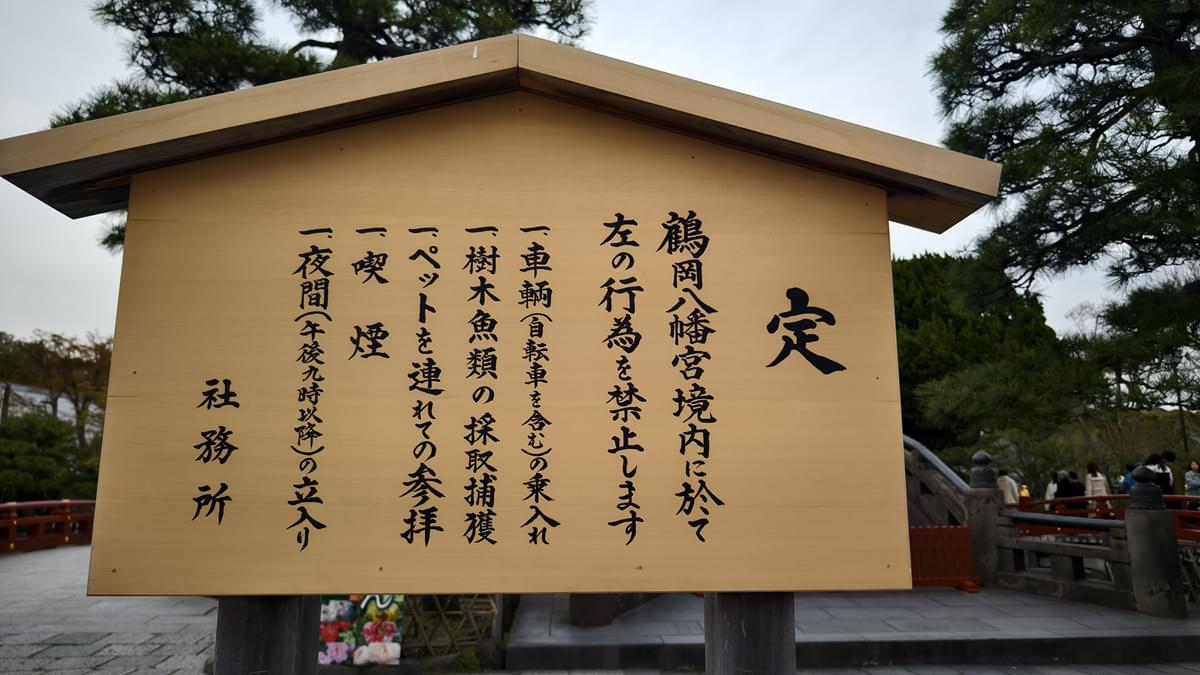 定
鶴岡八幡宮境内に於て
左の行為を禁止します
一、車輌(自転車を含む)の乗入れ
一、樹木魚類の採取捕獲
一、ペットを連れての参拝
一、喫煙
一、夜間(午後九時以降)の立入り
社務所